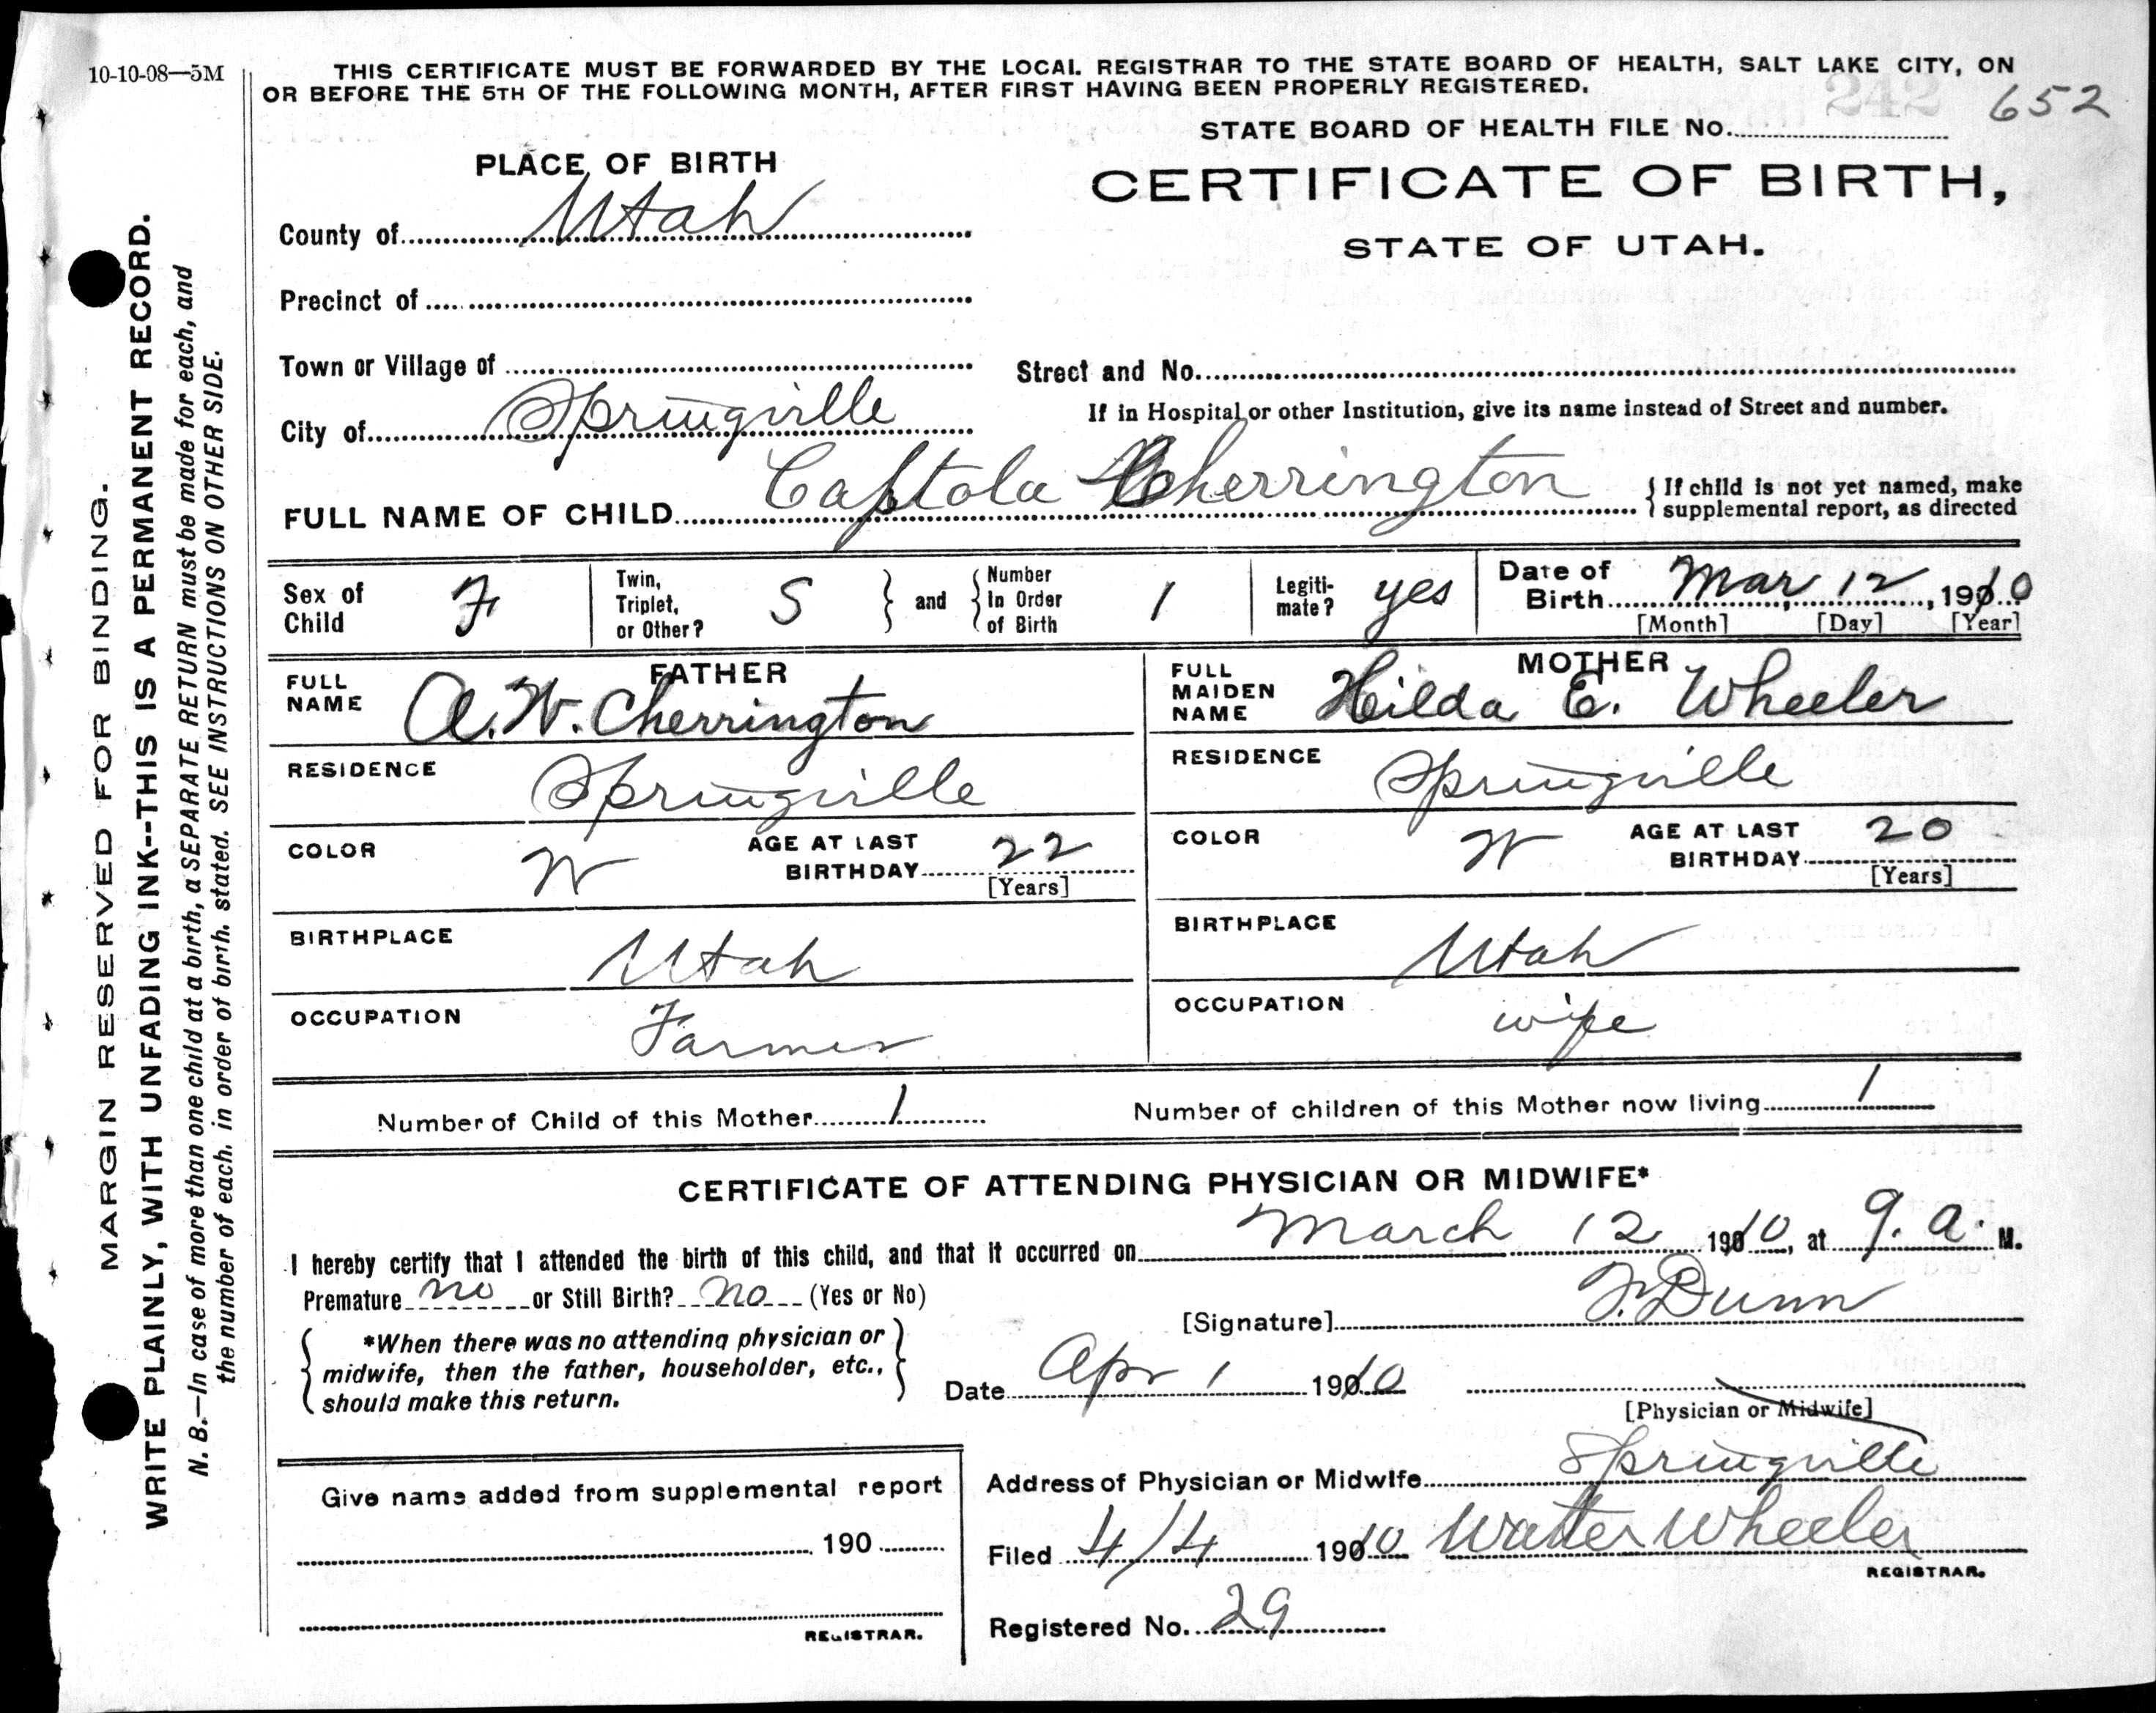 10-10-08—5M
THIS CERTIFICATE MUST BE FORWARDED BY THE LOCAL REGISTRAR TO THE STATE BOARD OF HEALTH, SALT LAKE CITY, ON
OR BEFORE THE 5TH OF THE FOLLOWING MONTH, AFTER FIRST HAVING BEEN PROPERLY REGISTERED.
242 652
STATE BOARD OF HEALTH FILE No.
PLACE OF BIRTH
CERTIFICATE OF BIRTH,
STATE OF UTAH.
County of Utah
Precinct of
Town or Village of
Street and No.
If in Hospital or other Institution, give its name instead of Street and number.
City of Springville
FULL NAME OF CHILD Captola Cherrington
If child is not yet named, make
supplemental report, as directed
Sex of
Child F
Twin,
Triplet,
or Other? S
and
Number
In Order
of Birth 1
Legiti-
mate? yes
Date of
Birth Mar 12, 1910
[Month] [Day] [Year]
FATHER
FULL
NAME A. W. Cherrington
MOTHER
FULL
MAIDEN
NAME Hilda E. Wheeler
RESIDENCE Springville
RESIDENCE Springville
COLOR W
AGE AT LAST
BIRTHDAY 22
[Years]
COLOR W
AGE AT LAST
BIRTHDAY 20
[Years]
BIRTHPLACE Utah
BIRTHPLACE Utah
OCCUPATION Farmer
OCCUPATION wife
Number of Child of this Mother 1
Number of children of this Mother now living 1
CERTIFICATE OF ATTENDING PHYSICIAN OR MIDWIFE*
I hereby certify that I attended the birth of this child, and that it occurred on March 12 1910, at 9. a. M.
Premature no or Still Birth? no (Yes or No)
[Signature] F. Dunn
*When there was no attending physician or
midwife, then the father, householder, etc.,
should make this return.
Date Apr 1 1910
[Physician or Midwife]
Give name added from supplemental report
190
REGISTRAR.
Address of Physician or Midwife Springville
Filed 4/4 1910 Walter Wheeler
REGISTRAR.
Registered No. 29
MARGIN RESERVED FOR BINDING.
WRITE PLAINLY, WITH UNFADING INK--THIS IS A PERMANENT RECORD.
N. B.—In case of more than one child at a birth, a SEPARATE RETURN must be made for each, and
the number of each, in order of birth, stated. SEE INSTRUCTIONS ON OTHER SIDE.